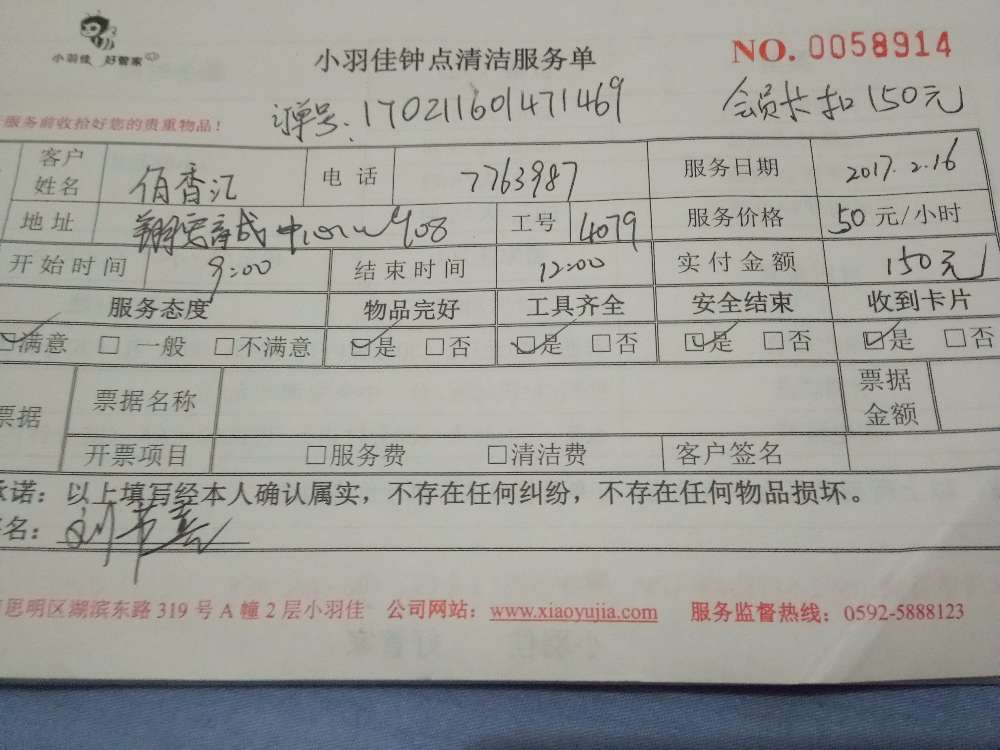 小羽佳 好管家
小羽佳钟点清洁服务单
NO. 0058914
订单号:170211601471469
会员卡扣150元
服务前收拾好您的贵重物品!
客户姓名 佰香汇 电话 7763987 服务日期 2017.2.16
地址 中心 408 工号 4079 服务价格 50元/小时
开始时间 9:00 结束时间 12:00 实付金额 150元
服务态度 物品完好 工具齐全 安全结束 收到卡片
☑满意 □一般 □不满意 ☑是 □否 ☑是 □否 ☑是 □否 ☑是 □否
票据 票据名称 票据金额
开票项目 □服务费 □清洁费 客户签名
承诺:以上填写经本人确认属实,不存在任何纠纷,不存在任何物品损坏。
名:
思明区湖滨东路319号A幢2层小羽佳 公司网站:www.xiaoyujia.com 服务监督热线:0592-5888123